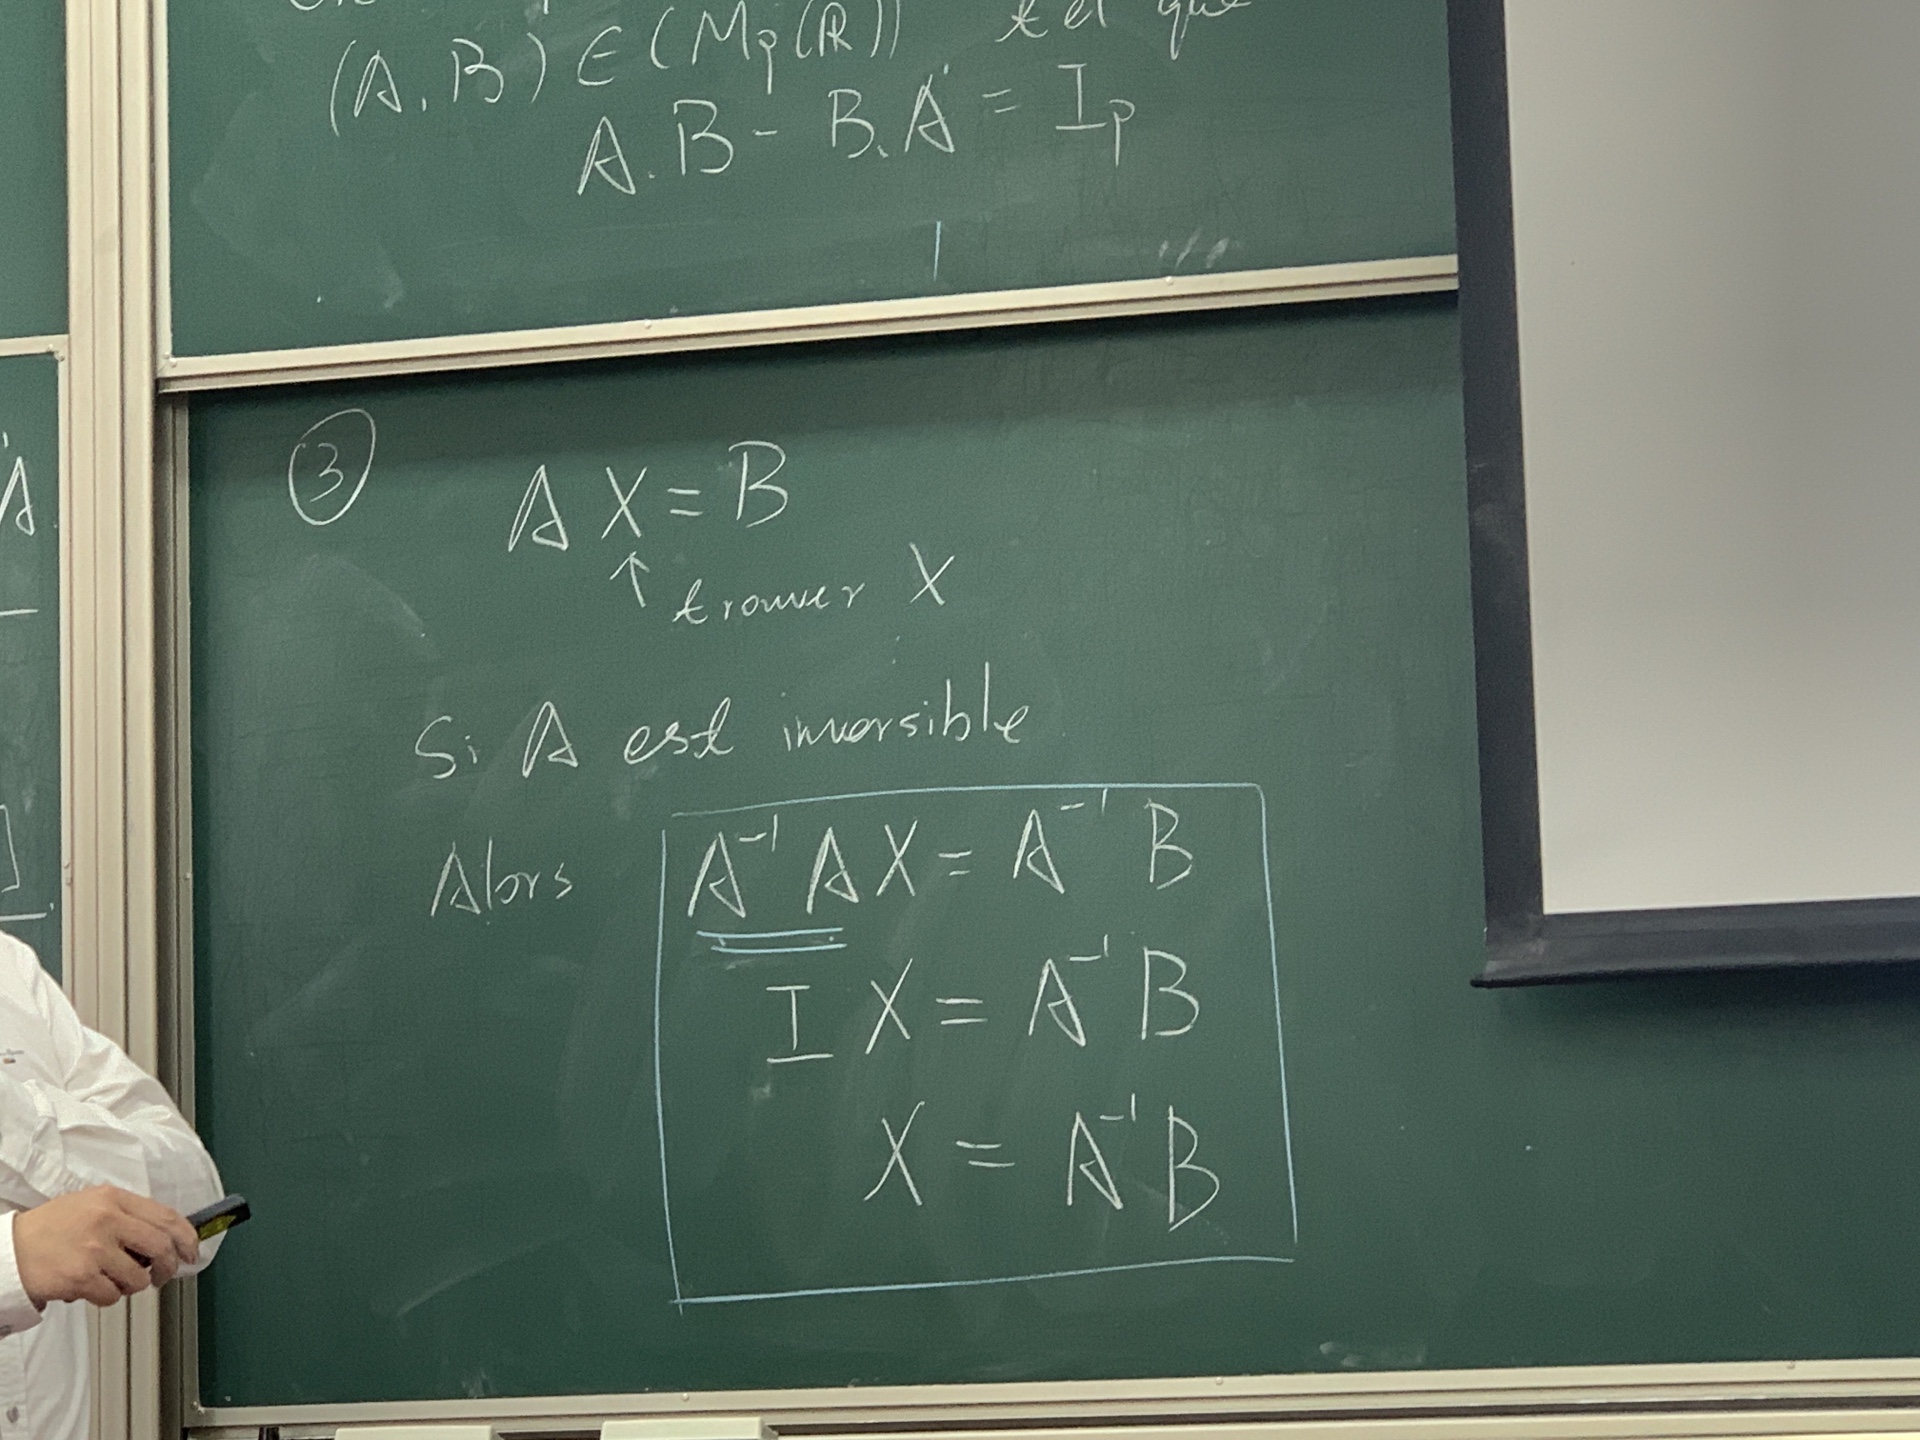 (A.B) ∈ (Mp(R)) tel que
A.B - B.A = Ip
A
③
A X = B
↑ trouver X
Si A est inversible
Alors A⁻¹ A X = A⁻¹ B
I X = A⁻¹ B
X = A⁻¹ B